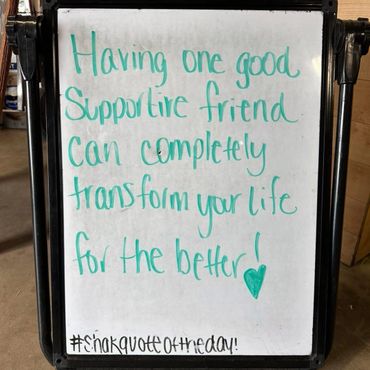 Having one good
Supportive friend
can completely
transform your life
for the better!
#Shakquoteoftheday!